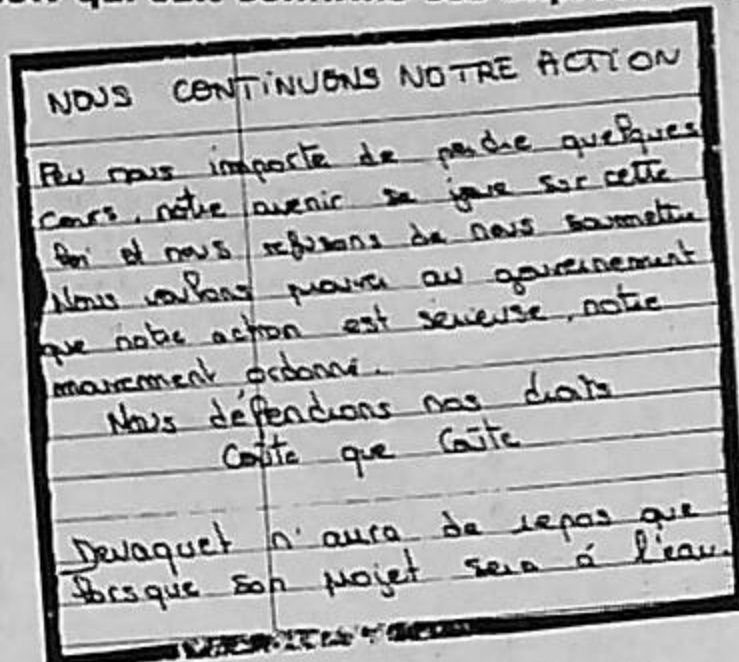 NOUS CONTINUONS NOTRE ACTION
Peu nous importe de perdre quelques
cours, notre avenir se joue sur cette
loi et nous refusons de nous soumettre
Nous voulons prouver au gouvernement
que notre action est sérieuse, notre
mouvement ordonné.
Nous défendrons nos droits
Coûte que Coûte
Devaquet n'aura de repos que
lorsque son projet sera à l'eau.